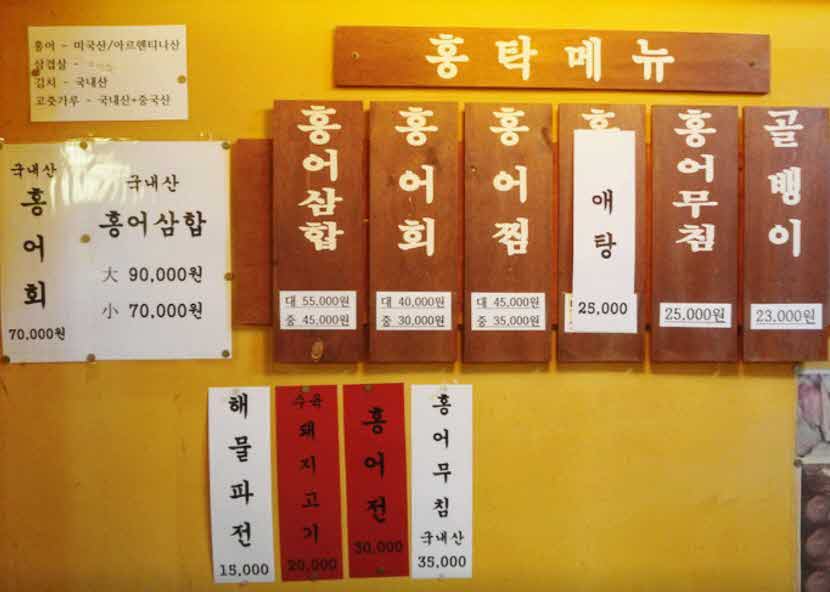 홍어 - 미국산/아르헨티나산
삼겹살 -
김치 - 국내산
고춧가루 - 국내산+중국산
홍탁메뉴
국내산
홍어회
70,000원
국내산
홍어삼합
大 90,000원
小 70,000원
홍어삼합
대 55,000원
중 45,000원
홍어회
대 40,000원
중 30,000원
홍어찜
대 45,000원
중 35,000원
애탕
25,000
홍어무침
25,000원
골뱅이
23,000원
해물파전
15,000
수육
돼지고기
20,000
홍어전
30,000
홍어무침
국내산
35,000